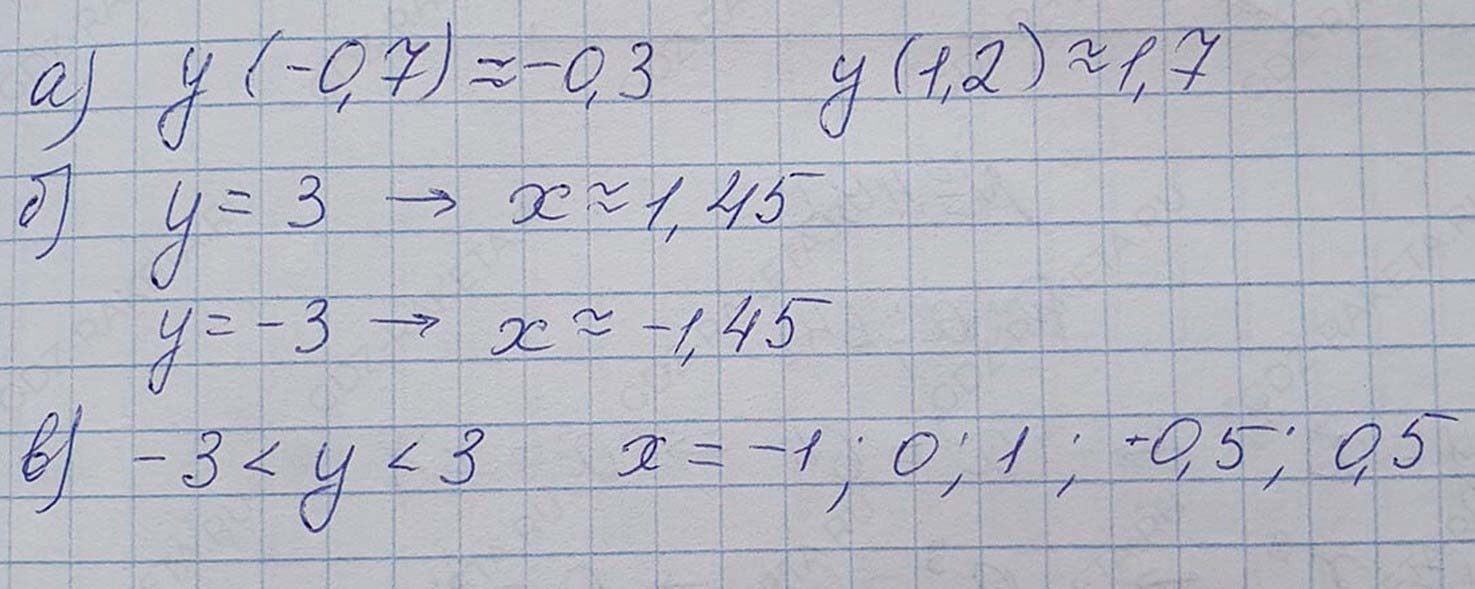 а) y (-0,7) ≈ -0,3 y (1,2) ≈ 1,7
б) y = 3 → x ≈ 1,45
y = -3 → x ≈ -1,45
в) -3 < y < 3 x = -1; 0; 1; -0,5; 0,5